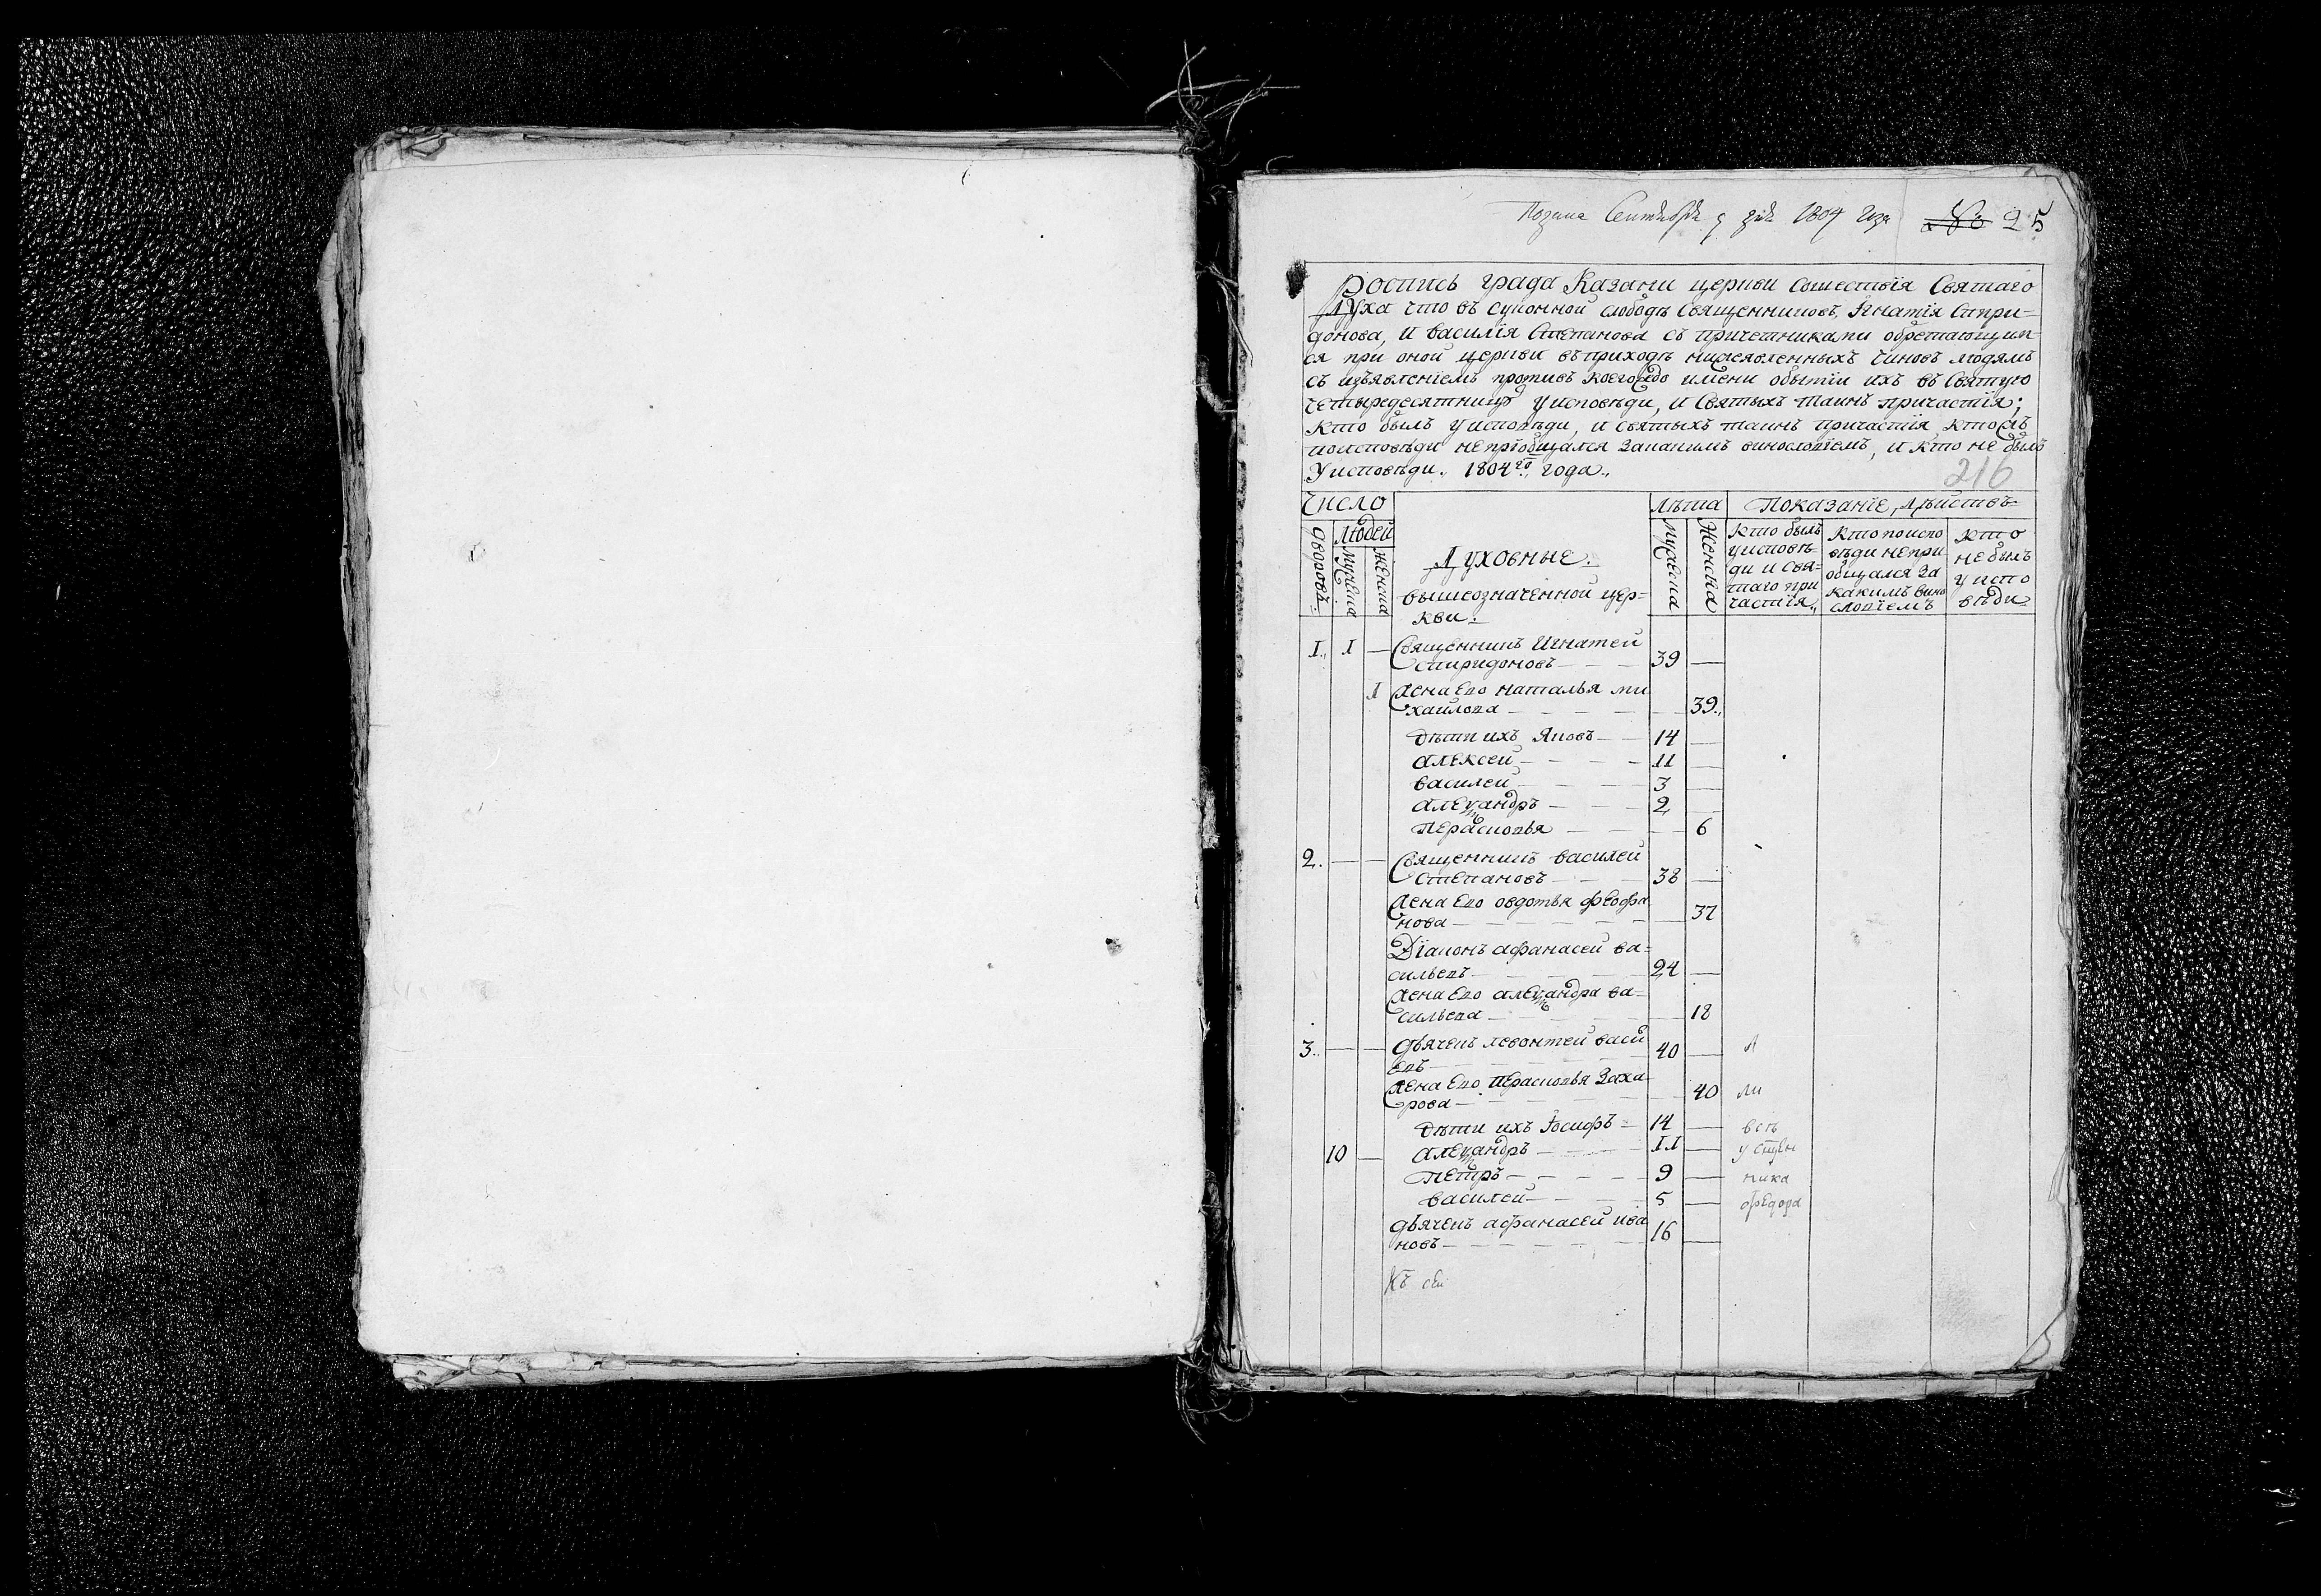 Подана Сентября 9 дня 1804 года 25
Роспись града Казани церкви Сошествія Святаго
Духа что въ суконной слободѣ Священниковъ, Игнатія Спири=
донова, и василія Степанова съ причетниками обретающим=
ся при оной церкви въ приходѣ нижеявленныхъ чиновъ людямъ
съ изъявленіемъ противъ коегождо имени обытіи ихъ въ Святую
четыредесятницу у исповѣди, и Святыхъ таинъ причастія;
кто былъ у исповѣди, и святыхъ таинъ причастія, кто жъ
по исповѣди не пріобщался за какимъ винословіемъ, и кто не былъ
У исповѣди. 1804го года.
216
Число Лѣта Показаніе, Дѣйствъ
Людей
Дворовъ. Мужеска Женска Мужеска Женска
Духовные.
вышеозначенной цер=
кви:
кто былъ
у исповѣ-
ди и свя-
таго при
частія.
кто по испо
вѣди не при
общался за
какимъ вино
словіемъ
кто
не былъ
у испо
вѣди
1. 1 — Священникъ Игнатей
Спиридоновъ — 39 —
1 Жена Его наталья ми
хаилова — 39.
дѣти ихъ Яковъ — 14 —
алексей — 11 —
василей — 3 —
алеѯандръ — 2 —
перасковья — 6
2. — — Священникъ василей
степановъ — 38 —
Жена Его овдотья феофа
нова — 37
Діаконъ афанасей ва=
сильевъ — 24 —
Жена Его алеѯандра ва=
сильева — 18
3. — — дьячекъ левонтей васи
евъ — 40 — л
Жена Его перасковья заха
рова — 40 ли
дѣти ихъ Іосифъ = 14 — всѣ
10 — алеѯандръ — 11 — у
петръ — 9 — ника
василей — 5 — федора
дьячекъ афанасей ива
новъ — 16 —
Къ